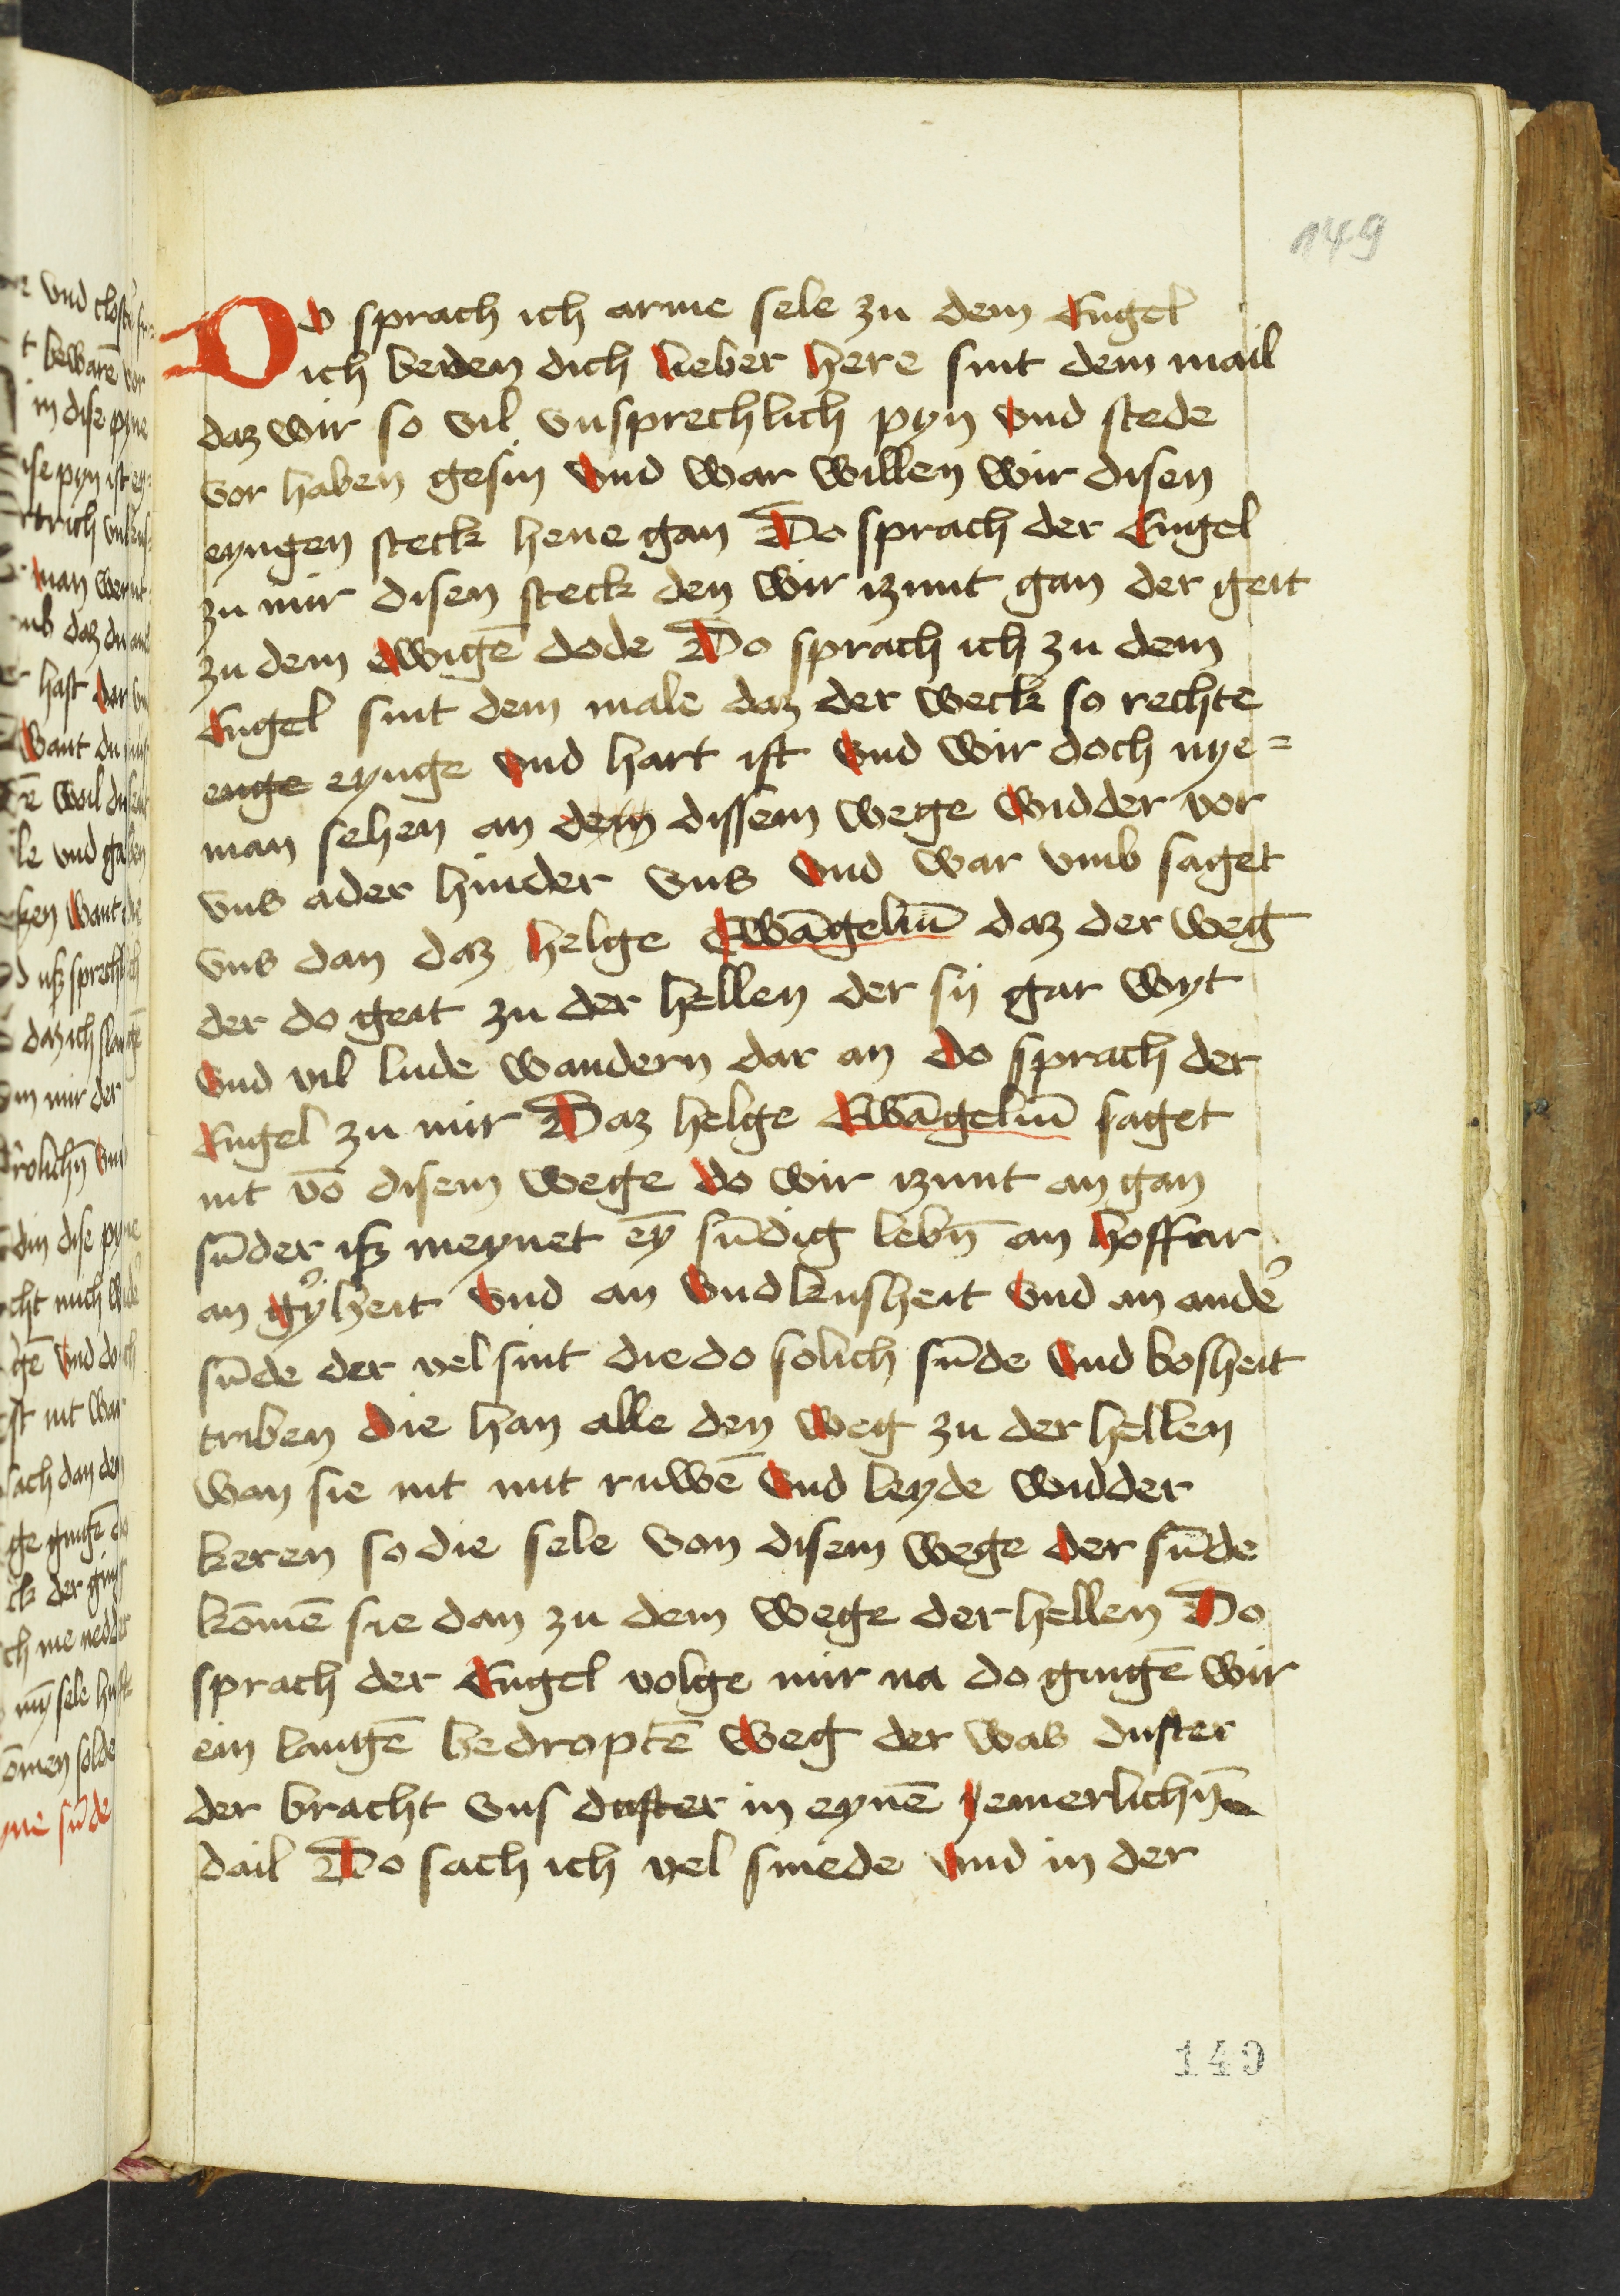 149
Do sprach ich arme sele zu dem Engel
ich beden dich lieber here sint dem mail
daz wir so vil vnsprechlich pyn vnd stede
vor haben gesin vnd war willen wir disen
eyngen steck hene gan Do sprach der Engel
zu mir disen steck den wir izunt gan der geit
zu dem ewigē dode Do sprach ich zu dem
Engel sint dem male daz der weck so rechte
enge eynge vnd hart ist vnd wir doch nye=
man sehen an dem dissem wege widder vor
vns ader hinder vns vnd war vmb saget
vns dan daz helge Ewāgeliū daz der weg
der do geit zu der hellen der sij gar wyt
vnd vil lude wandern dar an do sprach der
Engel zu mir Daz helge Ewāgeliū saget
nit vō disem wege do wir izunt an gan
sūder isz meynet eȳ sūdig lebn̄ an hoffrar
an gyͦlheit vnd an vndkusheit vnd an ander
sūde der vel sint die do solich sūde vnd bosheit
triben die han alle den weg zu der hellen
wan sie nit mit ruwē vnd leyde widder
keren so die sele von disem wege der sūde
kōmē sie dan zu dem wege der hellen Do
sprach der Engel volge mir na do gingē wir
ein langē bedroptē weg der was duster
der bracht vns duster in eynē yemerlichn̄
dail Do sach ich vel smede vnd in der
149